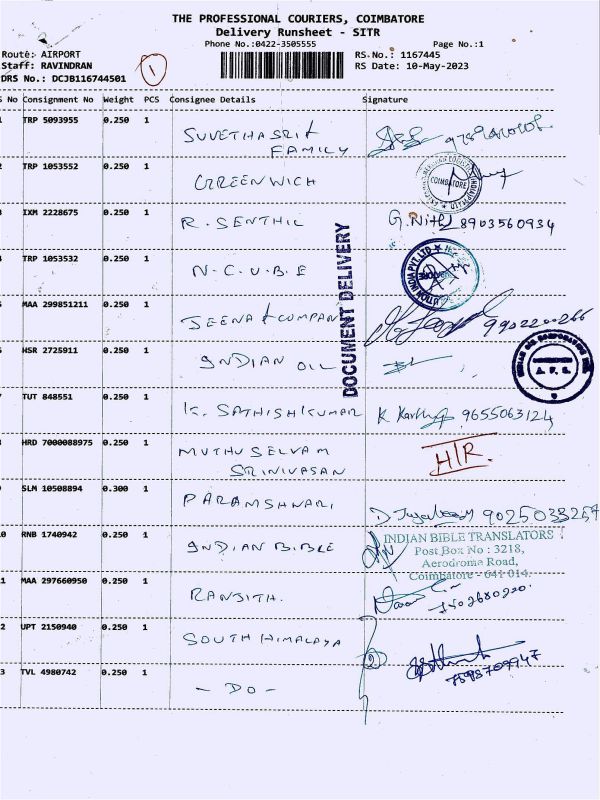 THE PROFESSIONAL COURIERS, COIMBATORE
Delivery Runsheet - SITR
Phone No.:0422-3505555 Page No.:1
Route: AIRPORT RS.No.: 1167445
Staff: RAVINDRAN 1 RS Date: 10-May-2023
DRS No.: DCJB116744501
S No Consignment No Weight PCS Consignee Details Signature
1 TRP 5093955 0.250 1 SUVETHA SRI & FAMILY
2 TRP 1053552 0.250 1 GREENWICH COIMBATORE
3 IXM 2228675 0.250 1 R. SENTHIL G. Nithy 8903560934
4 TRP 1053532 0.250 1 N.C.U.B.E
DOCUMENT DELIVERY
5 MAA 299851211 0.250 1 JEENA & COMPANY 9902200266
6 HSR 2725911 0.250 1 INDIAN OIL
7 TUT 848551 0.250 1 K. SATHISHKUMAR K 9655063124
8 HRD 7000088975 0.250 1 MUTHU SELVAM SRINIVASAN HIR.
9 SLM 10508894 0.300 1 PARAMSHWARI D 9025033257
10 RNB 1740942 0.250 1 INDIAN BIBLE
INDIAN BIBLE TRANSLATORS
Post Box No : 3218,
Aerodrome Road,
Coimbatore - 641 014.
11 MAA 297660950 0.250 1 RANJITH.
12 UPT 2150940 0.250 1 SOUTH HIMALAYA
13 TVL 4980742 0.250 1 - DO - 7598709947